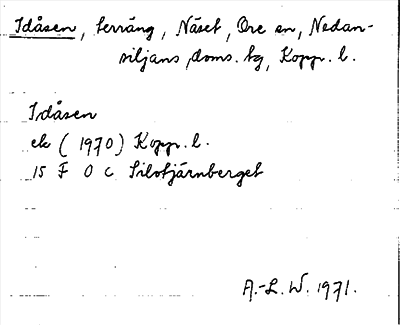 Idåsen, terräng, Näset, Ore sn, Nedan-
siljans doms. tg, Kopp. l.
Idåsen
ek (1970) Kopp. l.
15 F 0 c Silotjärnberget
A.-L. W. 1971.